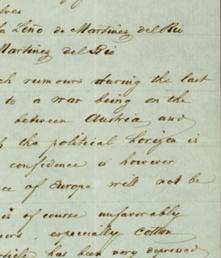 la Leño de Martinez del Rio
Martinez del Rio
rumours during the last
to a war being on the
between Austria and
the political horizon is
confidence is however
of Europe will not be
is of course unfavorably
especially cotton
article has been very depressed